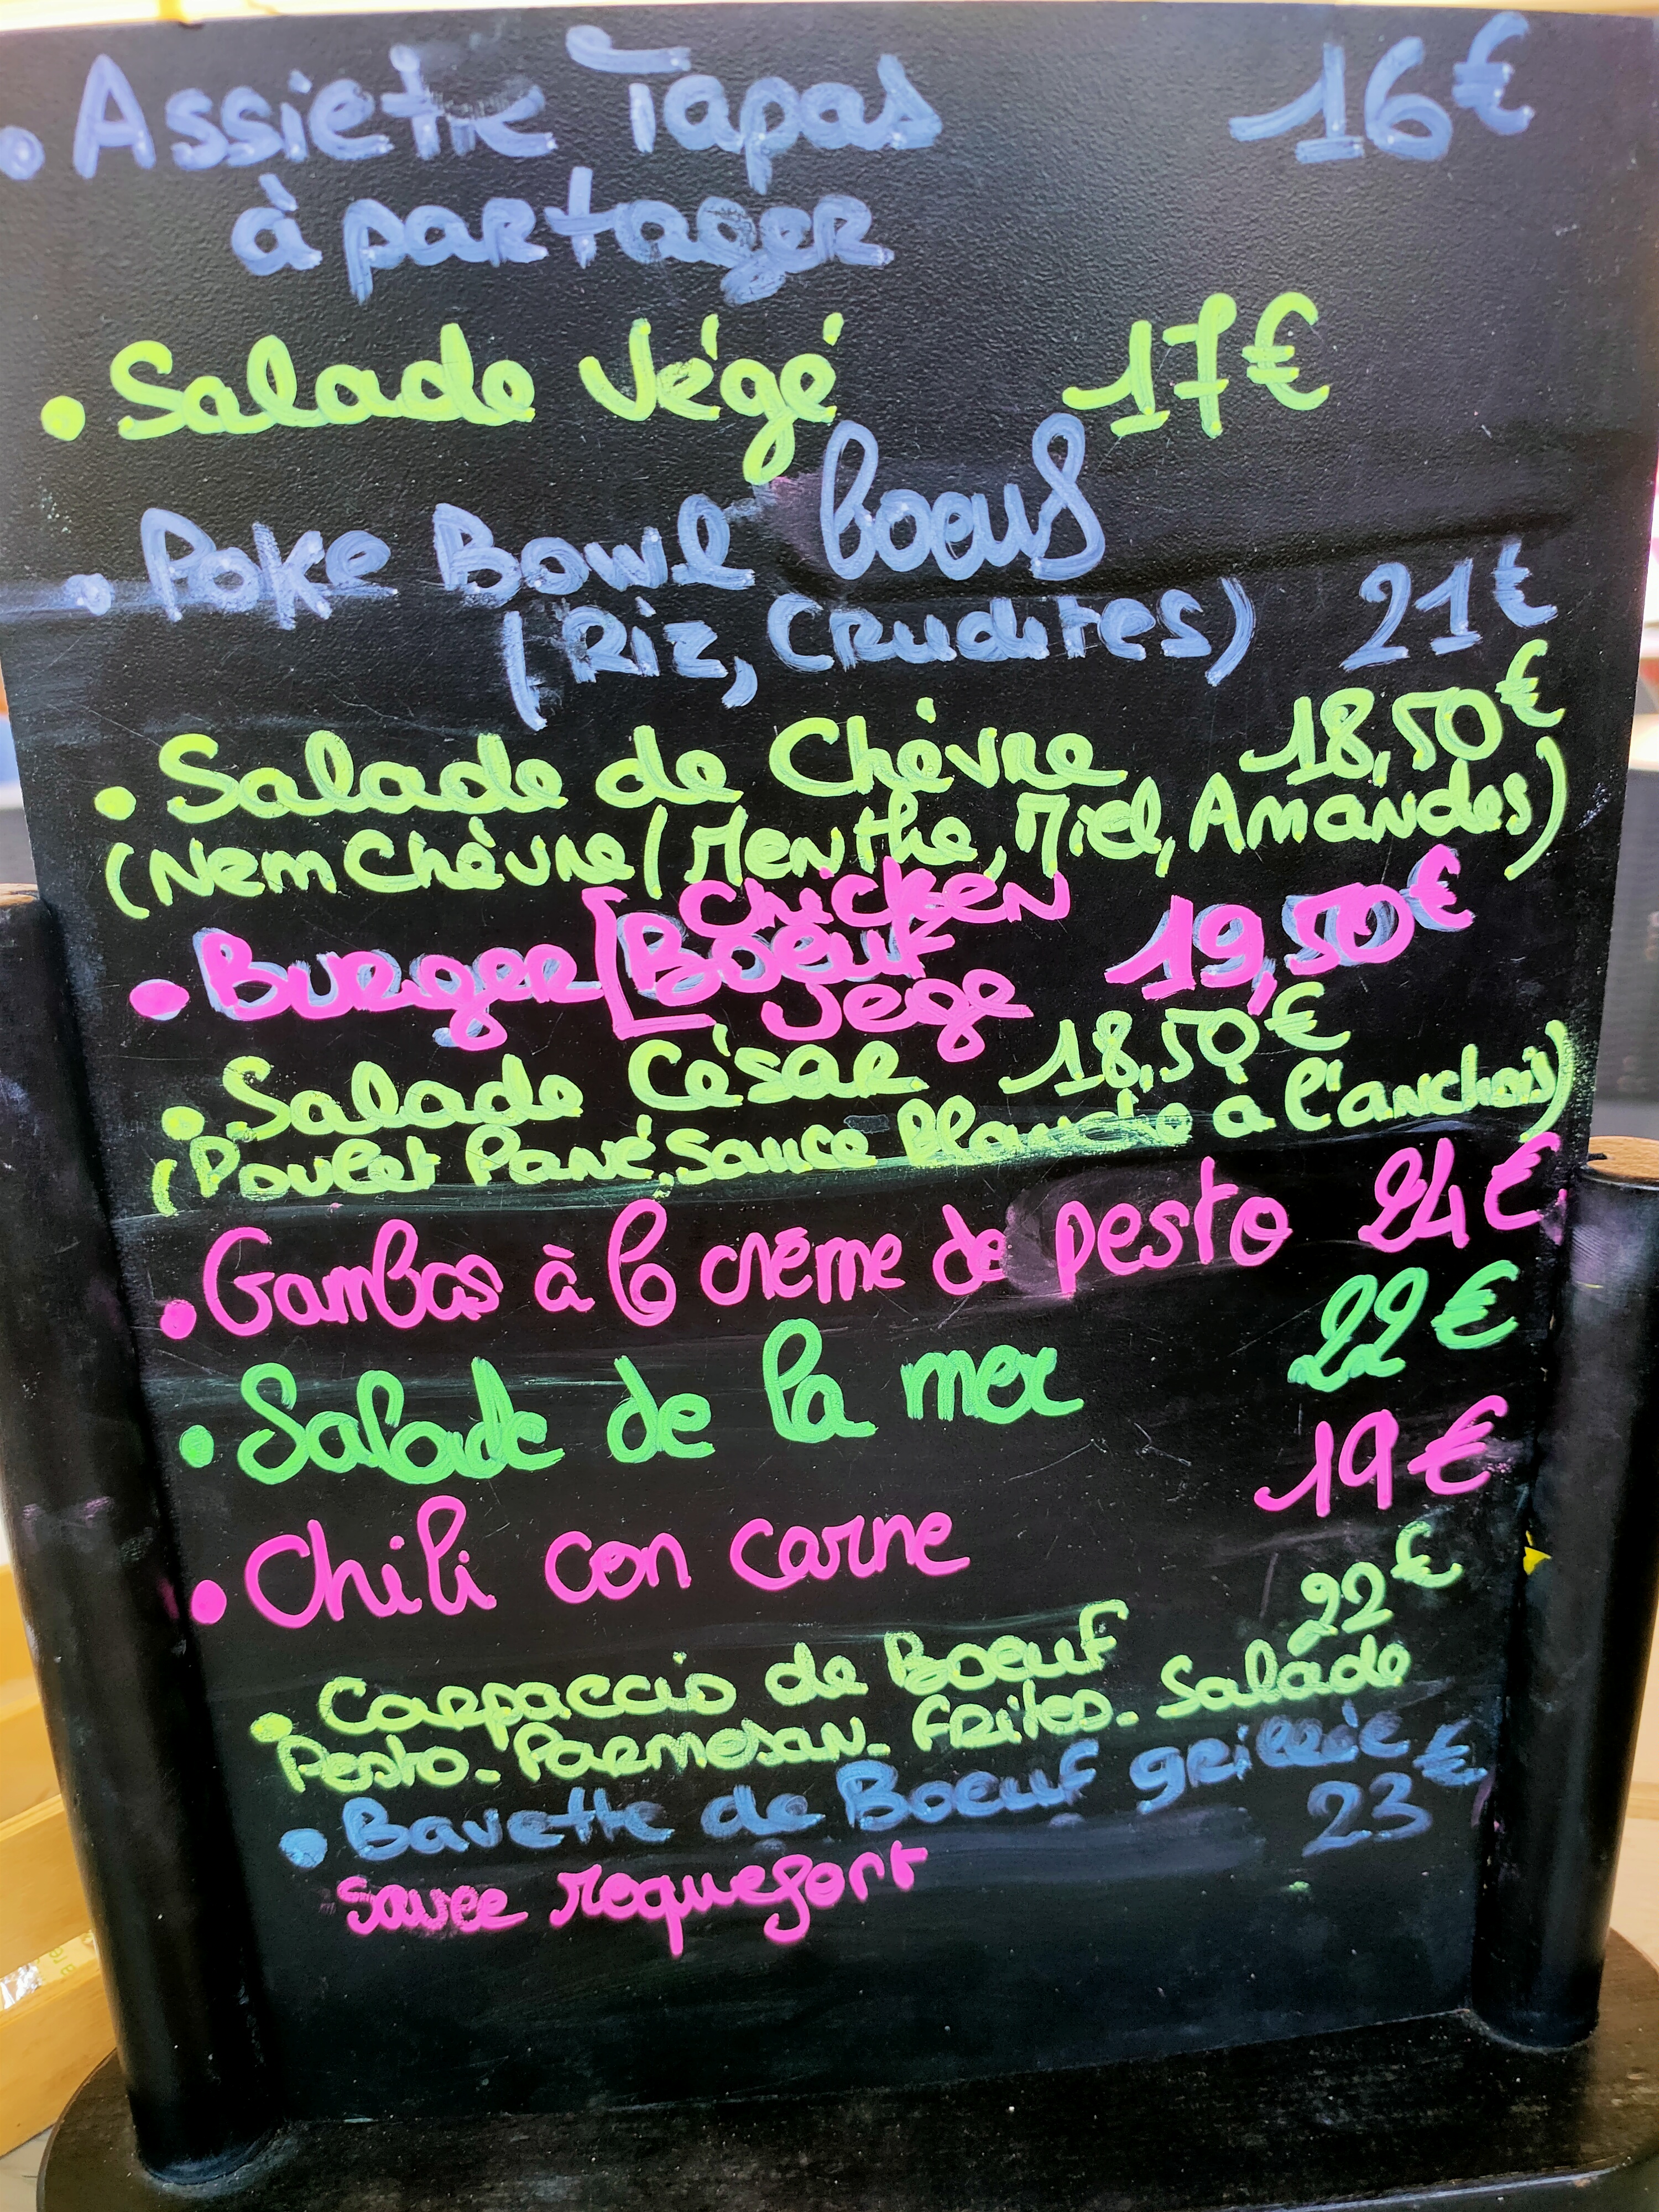 • Assiette Tapas 16€
à partager
• Salade Végé 17€
• Poke Bowl boeuf
(Riz, Crudites) 21€
• Salade de Chèvre 18,50€
(Nem Chèvre/Menthe, Miel, Amandes)
Chicken
• Burger [Boeuf 19,50€
Vege
• Salade César 18,50€
(Poulet Pané, Sauce Blanche à l'anchois)
• Gambas à la crème de pesto 24€
• Salade de la mer 22€
• Chili con carne 19€
• Carpaccio de Boeuf 22€
Pesto - Parmesan - Frites - Salade
• Bavette de Boeuf grillée 23€
Sauce roquefort